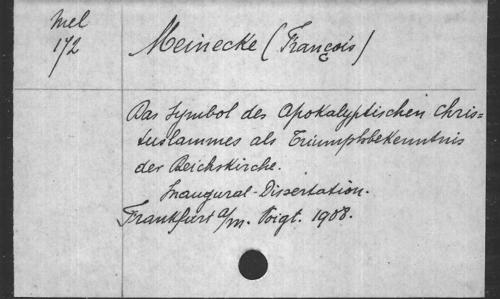 Mel
172
Meinecke (François)
Das Symbol des Apokalyptischen Chris=
tuslammes als Triumphbekenntnis
der Reichskirche.
Inaugural-Dissertation.
Frankfurt a/m. Voigt. 1908.